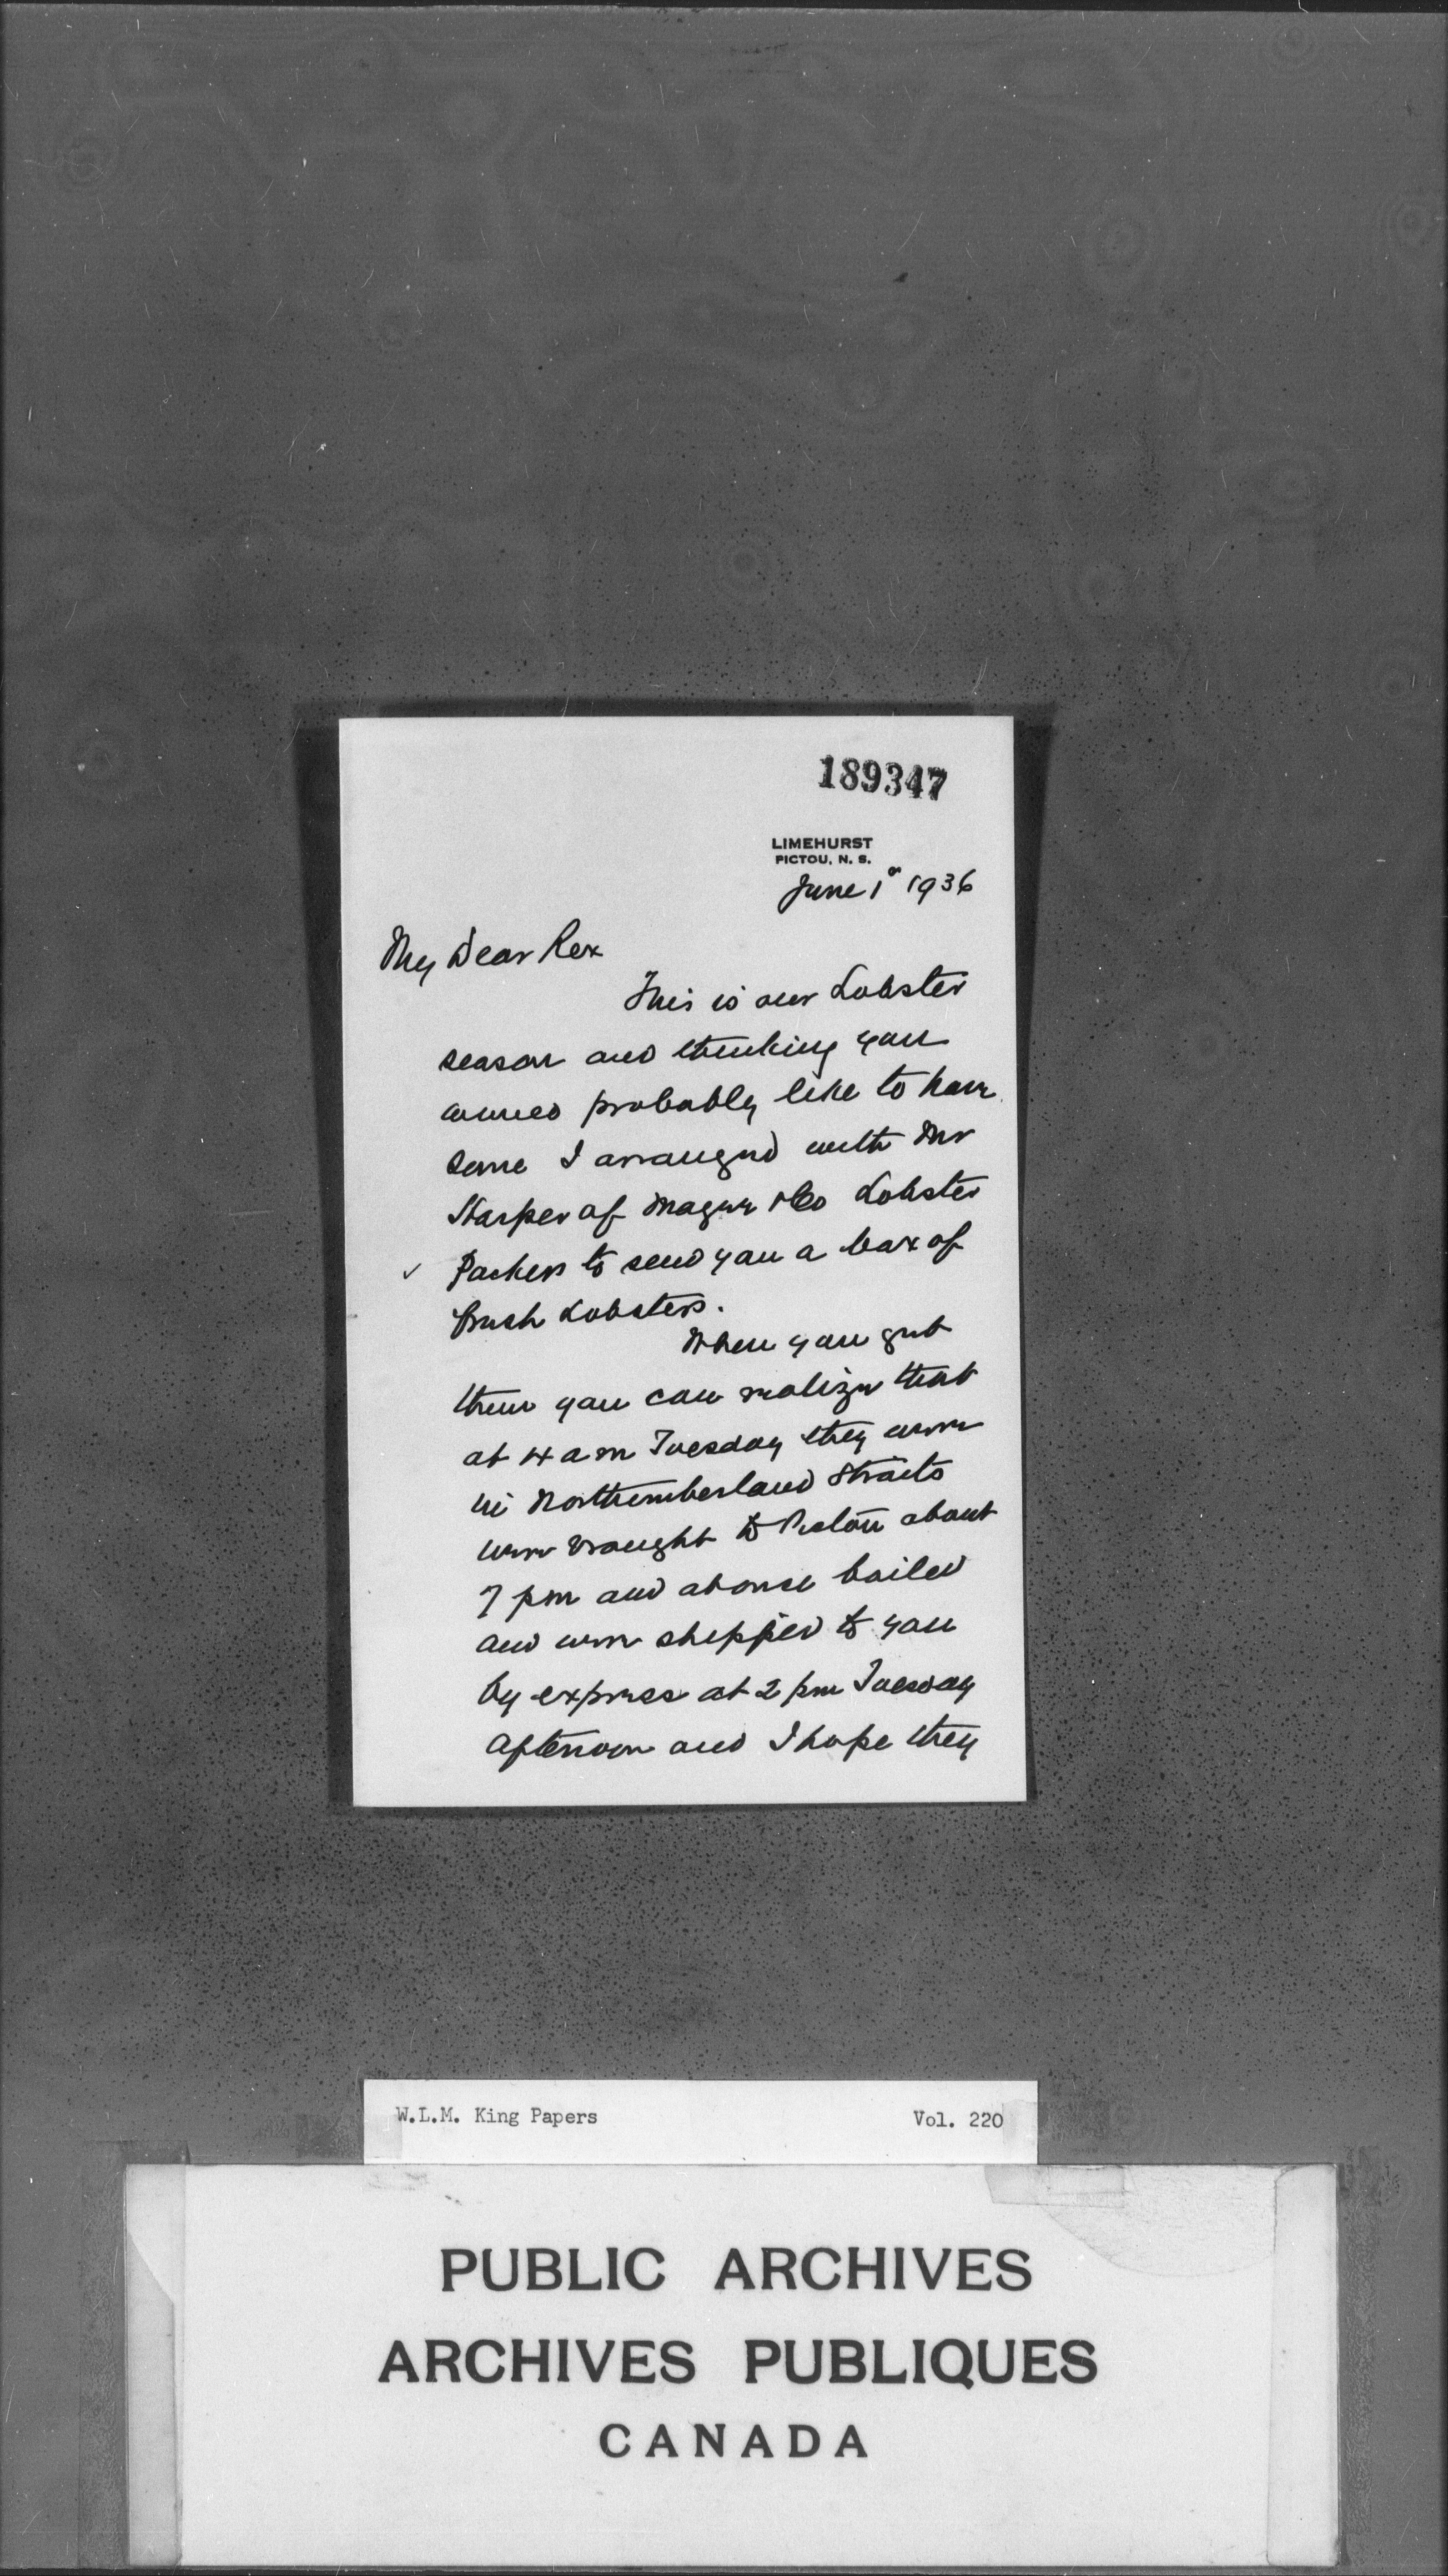 189347
LIMEHURST
PICTOU, N. S.
June 1st 1936
My Dear Rex
This is our Lobster
season and thinking you
would probably like to have
some I arranged with Mr
Harper of Magee & Co Lobster
✓ Packers to send you a box of
fresh Lobsters.
When you get
them you can realize that
at 4 am Tuesday they were
in Northumberland Straits
were brought to Pictou about
7 pm and at once boiled
and were shipped to you
by express at 2 pm Tuesday
afternoon and I hope they
W.L.M. King Papers
Vol. 220
PUBLIC ARCHIVES
ARCHIVES PUBLIQUES
CANADA